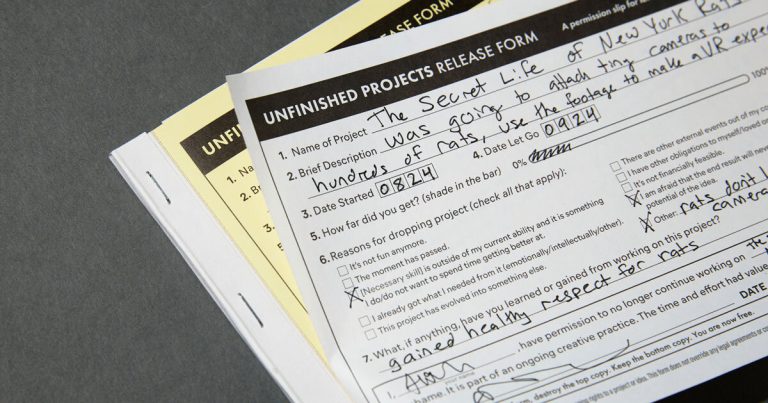 RELEASE FORM
UNFINISHED PROJECTS RELEASE FORM A permission slip for
1. Name of Project The Secret Life of New York Rats
2. Brief Description was going to attach tiny cameras to
hundreds of rats, use the footage to make a VR
3. Date Started 0824 4. Date Let Go 0924
5. How far did you get? (shade in the bar) 0% 100%
6. Reasons for dropping project (check all that apply):
It's not fun anymore.
The moment has passed.
[Necessary skill] is outside of my current ability and it is something
I do/do not want to spend time getting better at.
I already got what I needed from it (emotionally/intellectually/other).
This project has evolved into something else.
There are other external events out of my
I have other obligations to myself/loved
It's not financially feasible.
I am afraid that the end result will never
potential of the idea.
Other: rats don't
camera
7. What, if anything, have you learned or gained from working on this project?
gained healthy respect for rats
I, Alan, have permission to no longer continue working on The
name. It is part of an ongoing creative practice. The time and effort had value
your name
DATE
destroy the top copy. Keep the bottom copy. You are now free.
rights to a project or idea. This form does not override any legal agreements or
UNF
1. Na
2. B
3.
5.
6.
UNFIN
1. N
2.